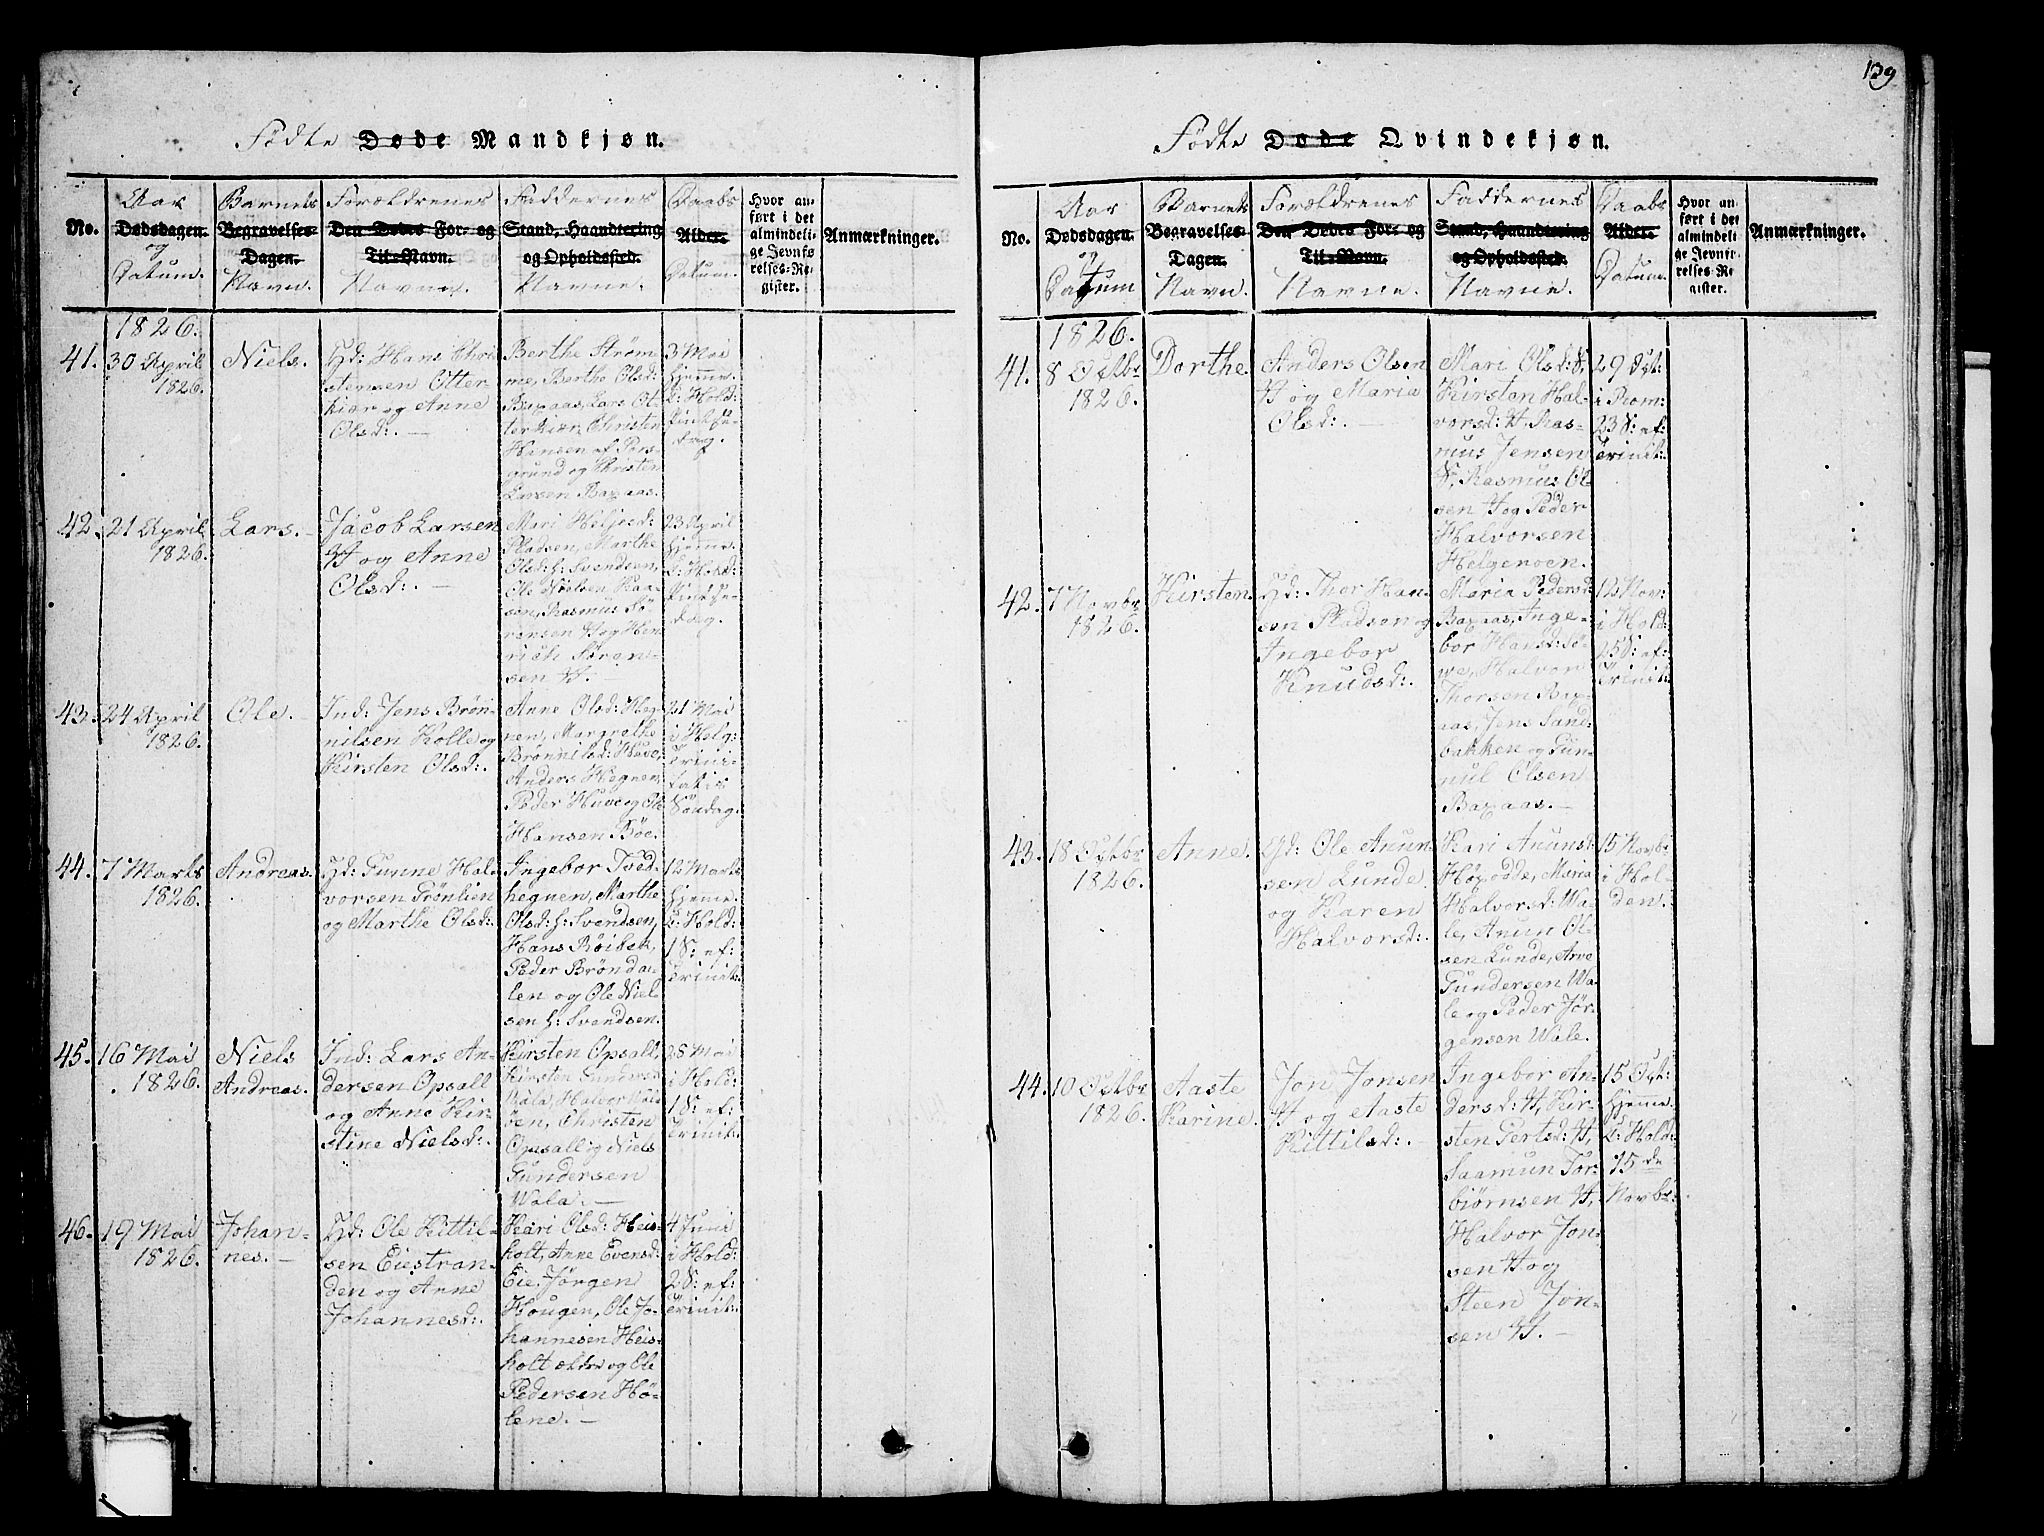 139
Fødte Døde Mandkjøn.
No.
Aar
Dødsdagen.
og
Datum.
Barnets
Begravelses-
Dagen.
Navn.
Forældrenes
Den Dødes For- og
Til-Navn.
Navne.
Faddernes
Stand, Haandtering
og Opholdssted.
Navne.
Daabs
Alder.
Datum.
Hvor an-
ført i det
almindeli-
ge Jevnfø-
relses-Re-
gister.
Anmærkninger.
1826.
41.
30 April
1826.
Niels.
Gd: Hans Chri
stensen Otter
kier og Anne
Olsd:. —
Berthe Strøme
me, Berthe Olsd:
Baxaas, Lars Ot
terkier, Christen
Hansen af Pors
grund og Christen
Larsen Baxaas.
3 Mai
hjemme.
C: Hold:
Pintsøn
dag.
42.
21 April
1826.
Lars. —
Jacob Larsen
H og Anne
Olsd:. —
Mari Heljesd:
Pladsen, Marthe
Olsd: h: Svendsen,
Ole Nielsen Kaa-
sen, Rasmus Sö-
rensen H og Hen
rich Sören-
sen H. —
23 April
hjemme.
C: Hold:
Pindsøn-
dag.
43.
24 April
1826.
Ole. —
Ind: Jens Brön-
nilsen Kolle og
Kirsten Olsd:.
Anne Olsd: Heg-
nen, Margrethe
Brönnilsd: Huve,
Anders Hegnen,
Peder Huve og Ole
Hansen Böe.
21 Mai
i Helg:
Trini-
tatis
Söndag.
44.
7 Marts
1826.
Andreas.
Gd: Gunne Hal
vorsen Grönlien
og Marthe Olsd:.
Ingebor Tved
hegnen, Marthe
Olsd: h: Svendsen,
Hans Röibek,
Peder Bröndal
len og Ole Niel
sen h: Svendsen.
12 Marts
hjemme.
C: Hold:
1 S: ef:
Trinit:.
45.
16 Mai
1826.
Niels
Andreas.
Ind: Lars An-
dersen Opsall
og Anne Kir-
stine Nielsd:.
Kirsten Opsall,
Kirsten Gundersd:
Wala, Halvor Wala
öen, Christen
Opsall og Niels
Gundersen
Wala. —
28 Mai
i Hold:
1 S: ef:
Trinit:.
46.
19 Mai
1826.
Johan-
nes. —
Gd: Ole Kittil-
sen Eiestran-
den og Anne
Johannesd:.
Kari Olsd: Heis-
holt, Anne Evensd:
Eie, Jörgen
Hougen, Ole Jo-
hannesen Heis-
holt ældre og Ole
Pedersen Hö-
lene. —
4 Juni
i Hold:
2 S: ef:
Trinit:.
Fødte Døde Qvindekjøn.
No.
Aar
Dødsdagen.
og
Datum
Barnets
Begravelses-
Dagen.
Navn.
Forældrenes
Den Dødes For- og
Til-Navn.
Navne.
Faddernes
Stand, Haandtering
og Opholdssted.
Navne.
Daabs
Alder.
Datum.
Hvor an-
ført i det
almindeli-
ge Jevnfø-
relses-Re-
gister.
Anmærkninger.
1826.
41.
8 Octbr
1826.
Dorthe
Anders Olsen
H og Maria
Olsd:. —
Mari Olsd: H,
Kirsten Hal-
vorsd: H, Ras-
mus Jensen
H, Rasmus Ol
sen H og Peder
Halvorsen
Helgeroen.
29 Oct:
i Rom:
23 S: ef:
Trinit:.
42.
7 Novbr
1826.
Kirsten.
Gd: Thor Haan-
sen Pladsen og
Ingebor
Knudsd:.
Maria Pedersd:
Baxaas, Inge-
bor Hansd: Sö-
we, Halvor
Thorsen Bax-
aas, Jens Sand-
bakken og Gun-
nul Olsen
Baxaas. —
12 Nov:
i Hold:
25 S: ef:
Trinit:.
43.
18 Octbr
1826.
Anne.
Gd: Ole Anun
sen Lunde
og Karen
Halvorsd:.
Kari Anunsd:
Höxodde, Maria
Halvorsd: Wa-
le, Anun Ol-
sen Lunde, Arve
Gundersen Wa-
le og Peder Jör-
gensen Wale.
15 Novbr
i Hol-
den.
44.
10 Octbr
1826.
Aaste
Karine.
Jon Jonsen
H og Aaste
Kittilsd:. —
Ingebor An-
dersd: H, Kir-
sten Gertsd: H,
Saamun Tor-
biörnsen H,
Halvor Jon-
sen H og
Steen Jon-
sen H. —
15 Oct:
hjemme.
C: Hold:
15 de
Novbr.